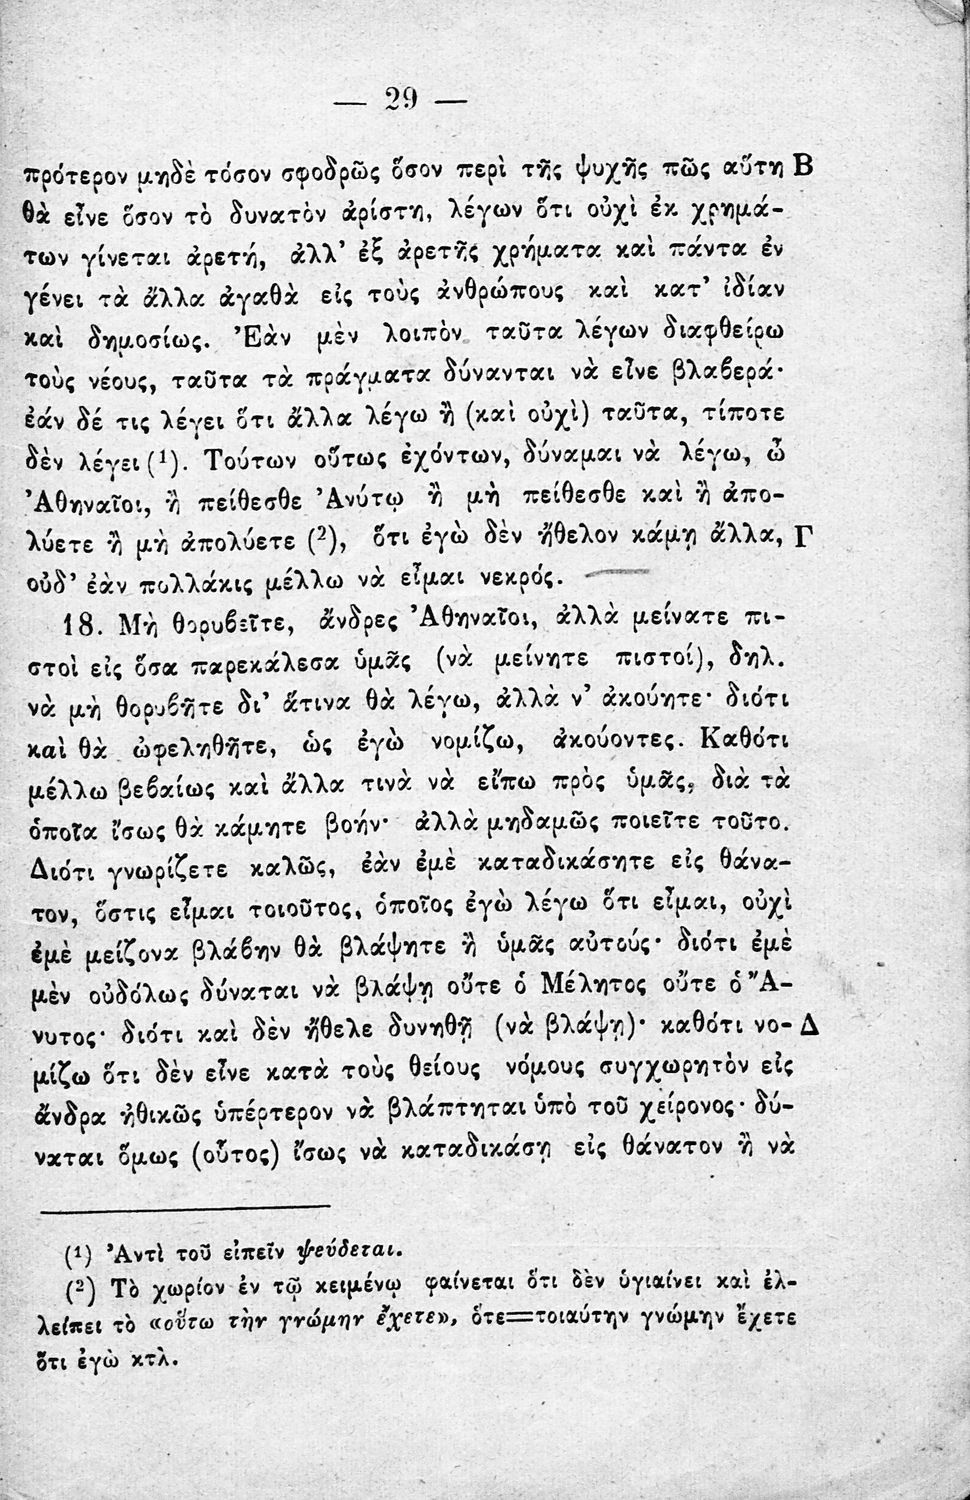 — 29 —
πρότερον μηδὲ τόσον σφοδρῶς ὅσον περὶ τῆς ψυχῆς πῶς αὕτη Β
θὰ εἶνε ὅσον τὸ δυνατὸν ἀρίστη, λέγων ὅτι οὐχὶ ἐκ χρημά-
των γίνεται ἀρετή, ἀλλ’ ἐξ ἀρετῆς χρήματα καὶ πάντα ἐν
γένει τὰ ἄλλα ἀγαθὰ εἰς τοὺς ἀνθρώπους καὶ κατ’ ἰδίαν
καὶ δημοσίως. Ἐὰν μὲν λοιπὸν ταῦτα λέγων διαφθείρω
τοὺς νέους, ταῦτα τὰ πράγματα δύνανται νὰ εἶνε βλαβερά·
ἐάν δέ τις λέγει ὅτι ἄλλα λέγω ἢ (καὶ οὐχὶ) ταῦτα, τίποτε
δὲν λέγει (¹). Τούτων οὕτως ἐχόντων, δύναμαι νὰ λέγω, ὦ
Ἀθηναῖοι, ἢ πείθεσθε Ἀνύτῳ ἢ μὴ πείθεσθε καὶ ἢ ἀπο-
λύετε ἢ μὴ ἀπολύετε (²), ὅτι ἐγὼ δὲν ἤθελον κάμῃ ἄλλα, Γ
οὐδ’ ἐὰν πολλάκις μέλλω νὰ εἶμαι νεκρός.
18. Μὴ θορυβεῖτε, ἄνδρες Ἀθηναῖοι, ἀλλὰ μείνατε πι-
στοὶ εἰς ὅσα παρεκάλεσα ὑμᾶς (νὰ μείνητε πιστοί), δηλ.
νὰ μὴ θορυβῆτε δι’ ἅτινα θὰ λέγω, ἀλλὰ ν’ ἀκούητε· διότι
καὶ θὰ ὠφεληθῆτε, ὡς ἐγὼ νομίζω, ἀκούοντες. Καθότι
μέλλω βεβαίως καὶ ἄλλα τινὰ νὰ εἴπω πρὸς ὑμᾶς, διὰ τὰ
ὁποῖα ἴσως θὰ κάμητε βοήν· ἀλλὰ μηδαμῶς ποιεῖτε τοῦτο.
Διότι γνωρίζετε καλῶς, ἐὰν ἐμὲ καταδικάσητε εἰς θάνα-
τον, ὅστις εἶμαι τοιοῦτος, ὁποῖος ἐγὼ λέγω ὅτι εἶμαι, οὐχὶ
ἐμὲ μείζονα βλάβην θὰ βλάψητε ἢ ὑμᾶς αὐτούς· διότι ἐμὲ
μὲν οὐδόλως δύναται νὰ βλάψῃ οὔτε ὁ Μέλητος οὔτε ὁ Ἄ-
νυτος· διότι καὶ δὲν ἤθελε δυνηθῇ (νὰ βλάψῃ)· καθότι νο- Δ
μίζω ὅτι δὲν εἶνε κατὰ τοὺς θείους νόμους συγχωρητὸν εἰς
ἄνδρα ἠθικῶς ὑπέρτερον νὰ βλάπτηται ὑπὸ τοῦ χείρονος· δύ-
ναται ὅμως (οὗτος) ἴσως νὰ καταδικάσῃ εἰς θάνατον ἢ νὰ
(¹) Ἀντὶ τοῦ εἰπεῖν ψεύδεται.
(²) Τὸ χωρίον ἐν τῷ κειμένῳ φαίνεται ὅτι δὲν ὑγιαίνει καὶ ἐλ-
λείπει τὸ «οὕτω τὴν γνώμην ἔχετε», ὅτε=τοιαύτην γνώμην ἔχετε
ὅτι ἐγὼ κτλ.